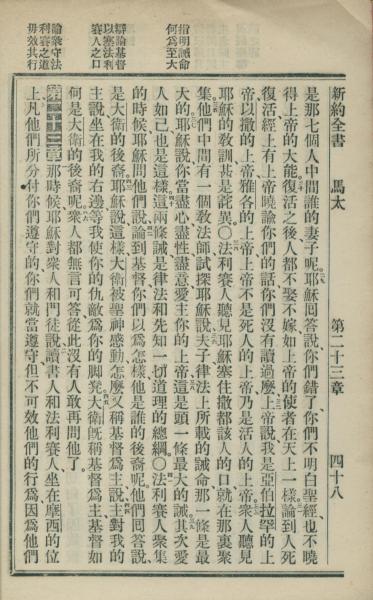 新約全書　馬太　第二十三章　四十八
指明誡命
何爲至大
辯論基督
以塞法利
賽人之口
諭衆守法
利賽之道
毋效其行
是那七個人中間誰的妻子呢耶穌回答說你們錯了你們不明白聖經也不曉
得上帝的大能復活之後人都不娶不嫁如上帝的使者在天上一樣論到人死
復活經上有上帝曉諭你們的話你們沒有讀過麼上帝說我是亞伯拉罕的上
帝以撒的上帝雅各的上帝上帝不是死人的上帝乃是活人的上帝衆人聽見
耶穌的敎訓甚是詫異〇法利賽人聽見耶穌塞住撒都該人的口就在那裏聚
集他們中間有一個敎法師試探耶穌說夫子律法上所載的誡命那一條是最
大的耶穌說你當盡心盡性盡意愛主你的上帝這是頭一條最大的誡其次愛
人如己也是這樣這兩條誡是律法和先知一切道理的總綱〇法利賽人聚集
的時候耶穌問他們說論到基督你們以爲怎樣他是誰的後裔呢他們回答說
是大衛的後裔耶穌說這樣大衛被聖神感動怎麼又稱基督爲主說主對我的
主說坐在我的右邊等我使你的仇敵爲你的脚凳大衛旣稱基督爲主基督如
何是大衛的後裔呢衆人都無言可答從此沒有人敢再問他了
第二十三章那時候耶穌對衆人和門徒說讀書人和法利賽人坐在摩西的位
上凡他們所分付你們遵守的你們就當遵守但不可效他們的行爲因爲他們